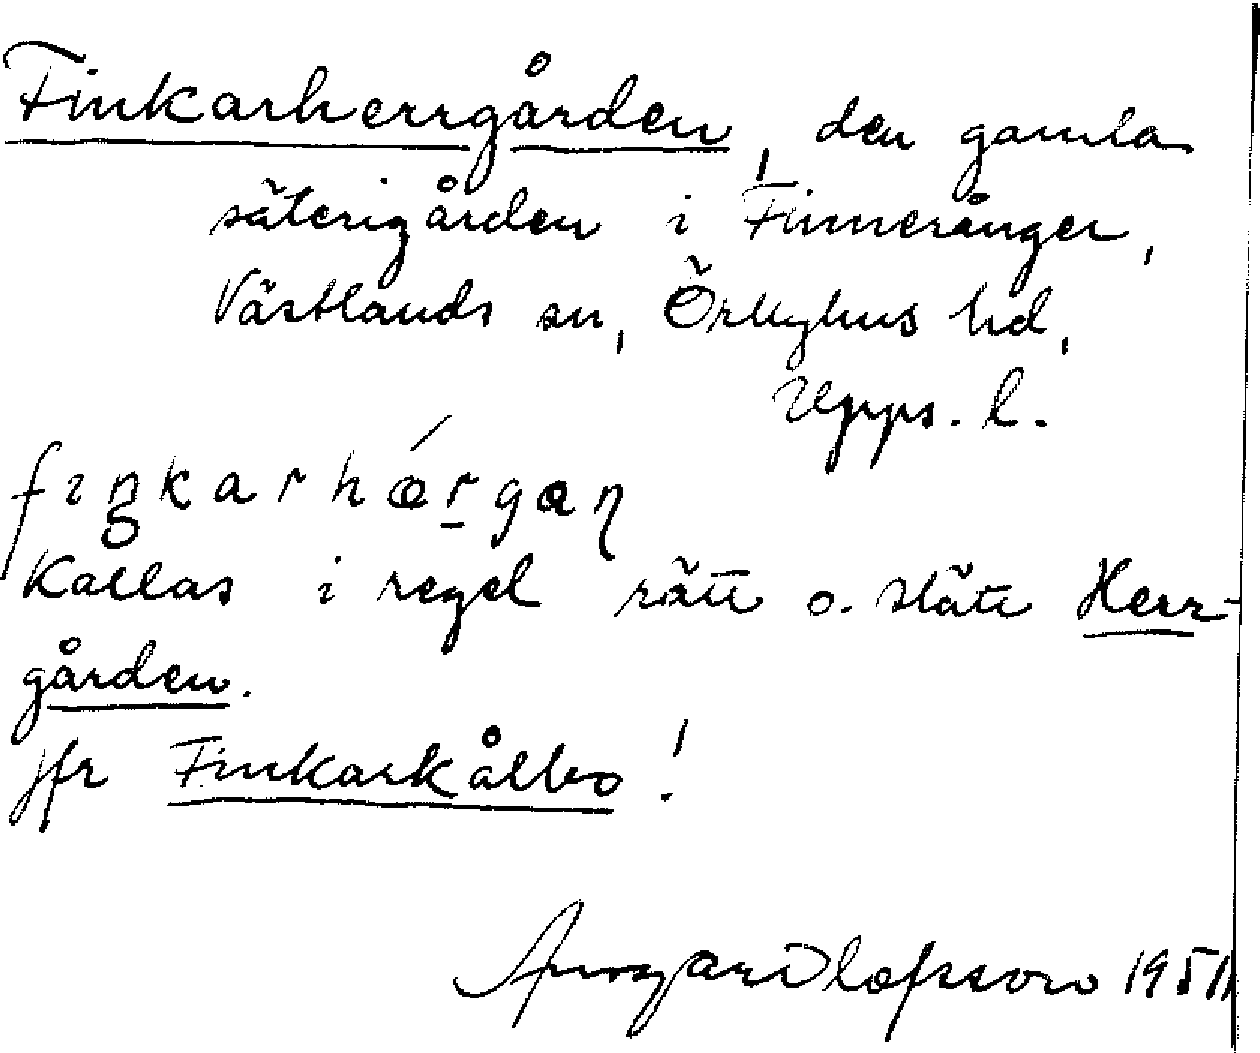 Finkarherrgården, den gamla
säterigården i Finneränger,
Västlands sn, Örbyhus hd,
Upps. l.
fiŋkarhǽrgaɳ
Kallas i regel rätt o. slätt Herr-
gården.
jfr Finkarkålbo!
Olofsson 1951